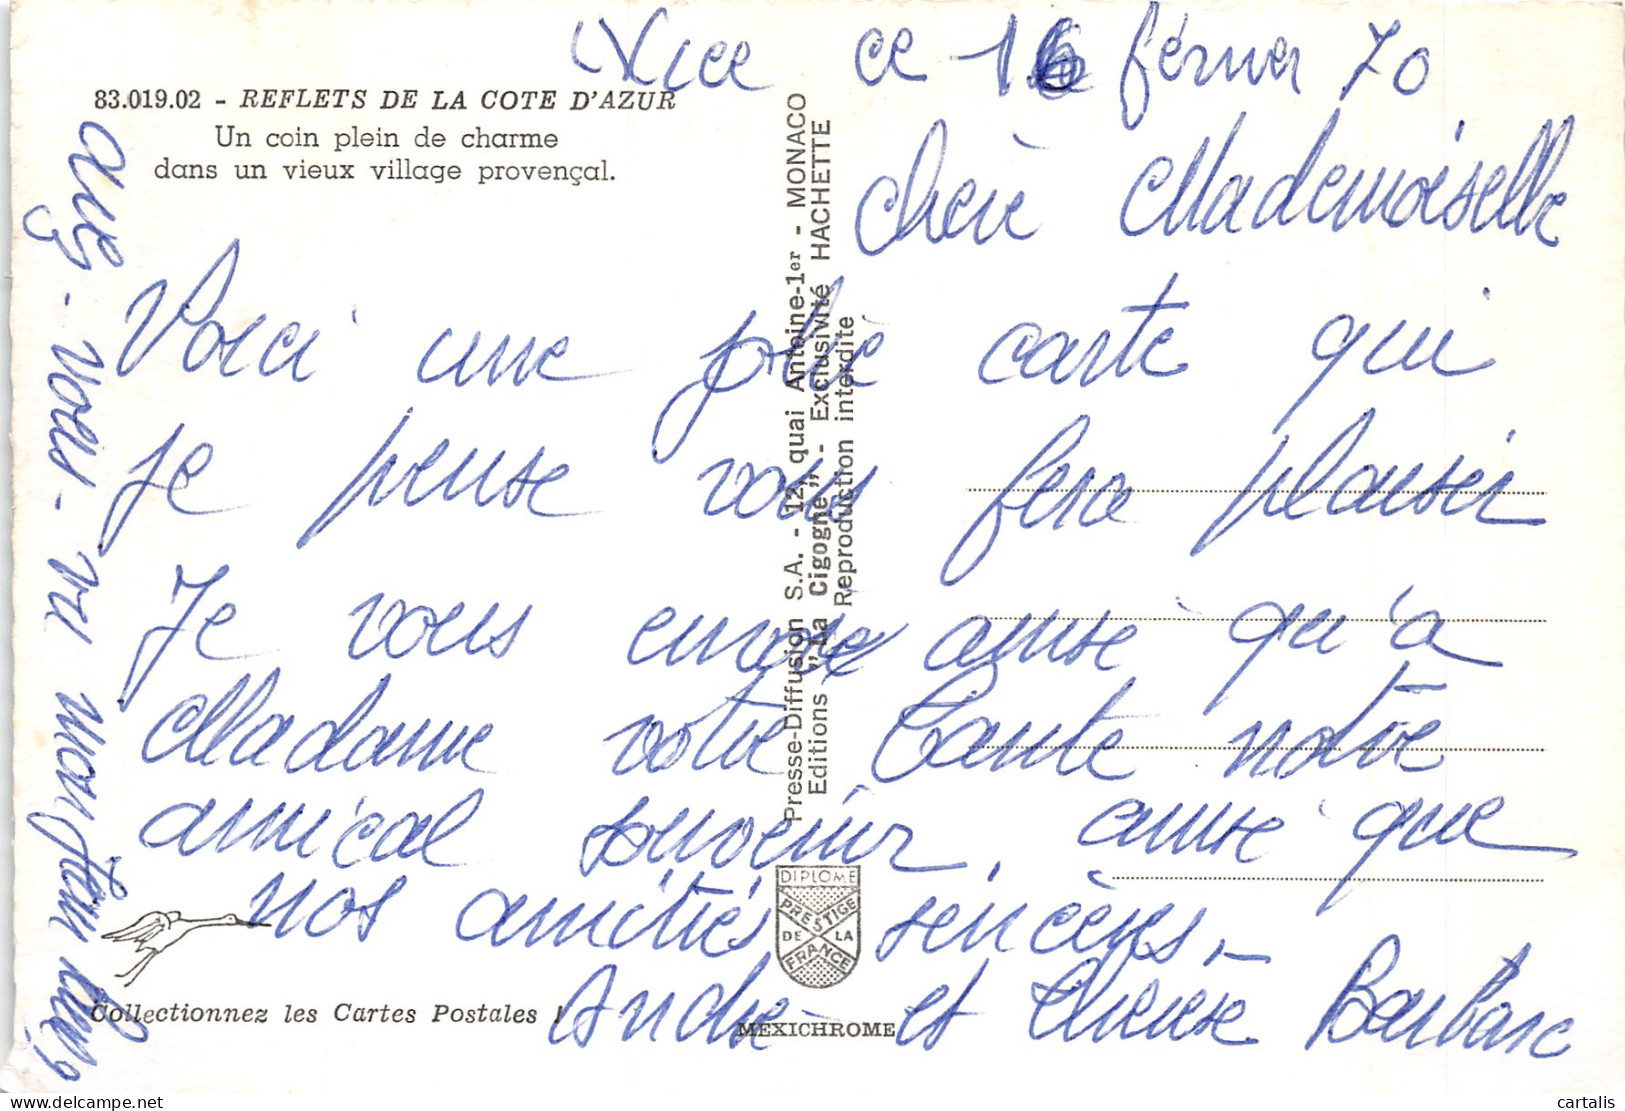 Nice ce 16 février 70
83.019.02 - REFLETS DE LA COTE D'AZUR
Un coin plein de charme
dans un vieux village provençal.
Chère Mademoiselle
Voici une jolie carte qui
je pense vous fera plaisir
Je vous envoie ainsi qu'à
Madame votre Tante notre
amical souvenir, ainsi que
nos amitiés sincères,
André et Thérèse Barbare
avez-vous-vu mon
Presse-Diffusion S.A. - 12, quai Antoine-1er - MONACO
Editions „La Cigogne„ - Exclusivité HACHETTE
Reproduction interdite
DIPLOME
PRESTIGE
DE LA
FRANCE
Collectionnez les Cartes Postales !
MEXICHROME
cartalis